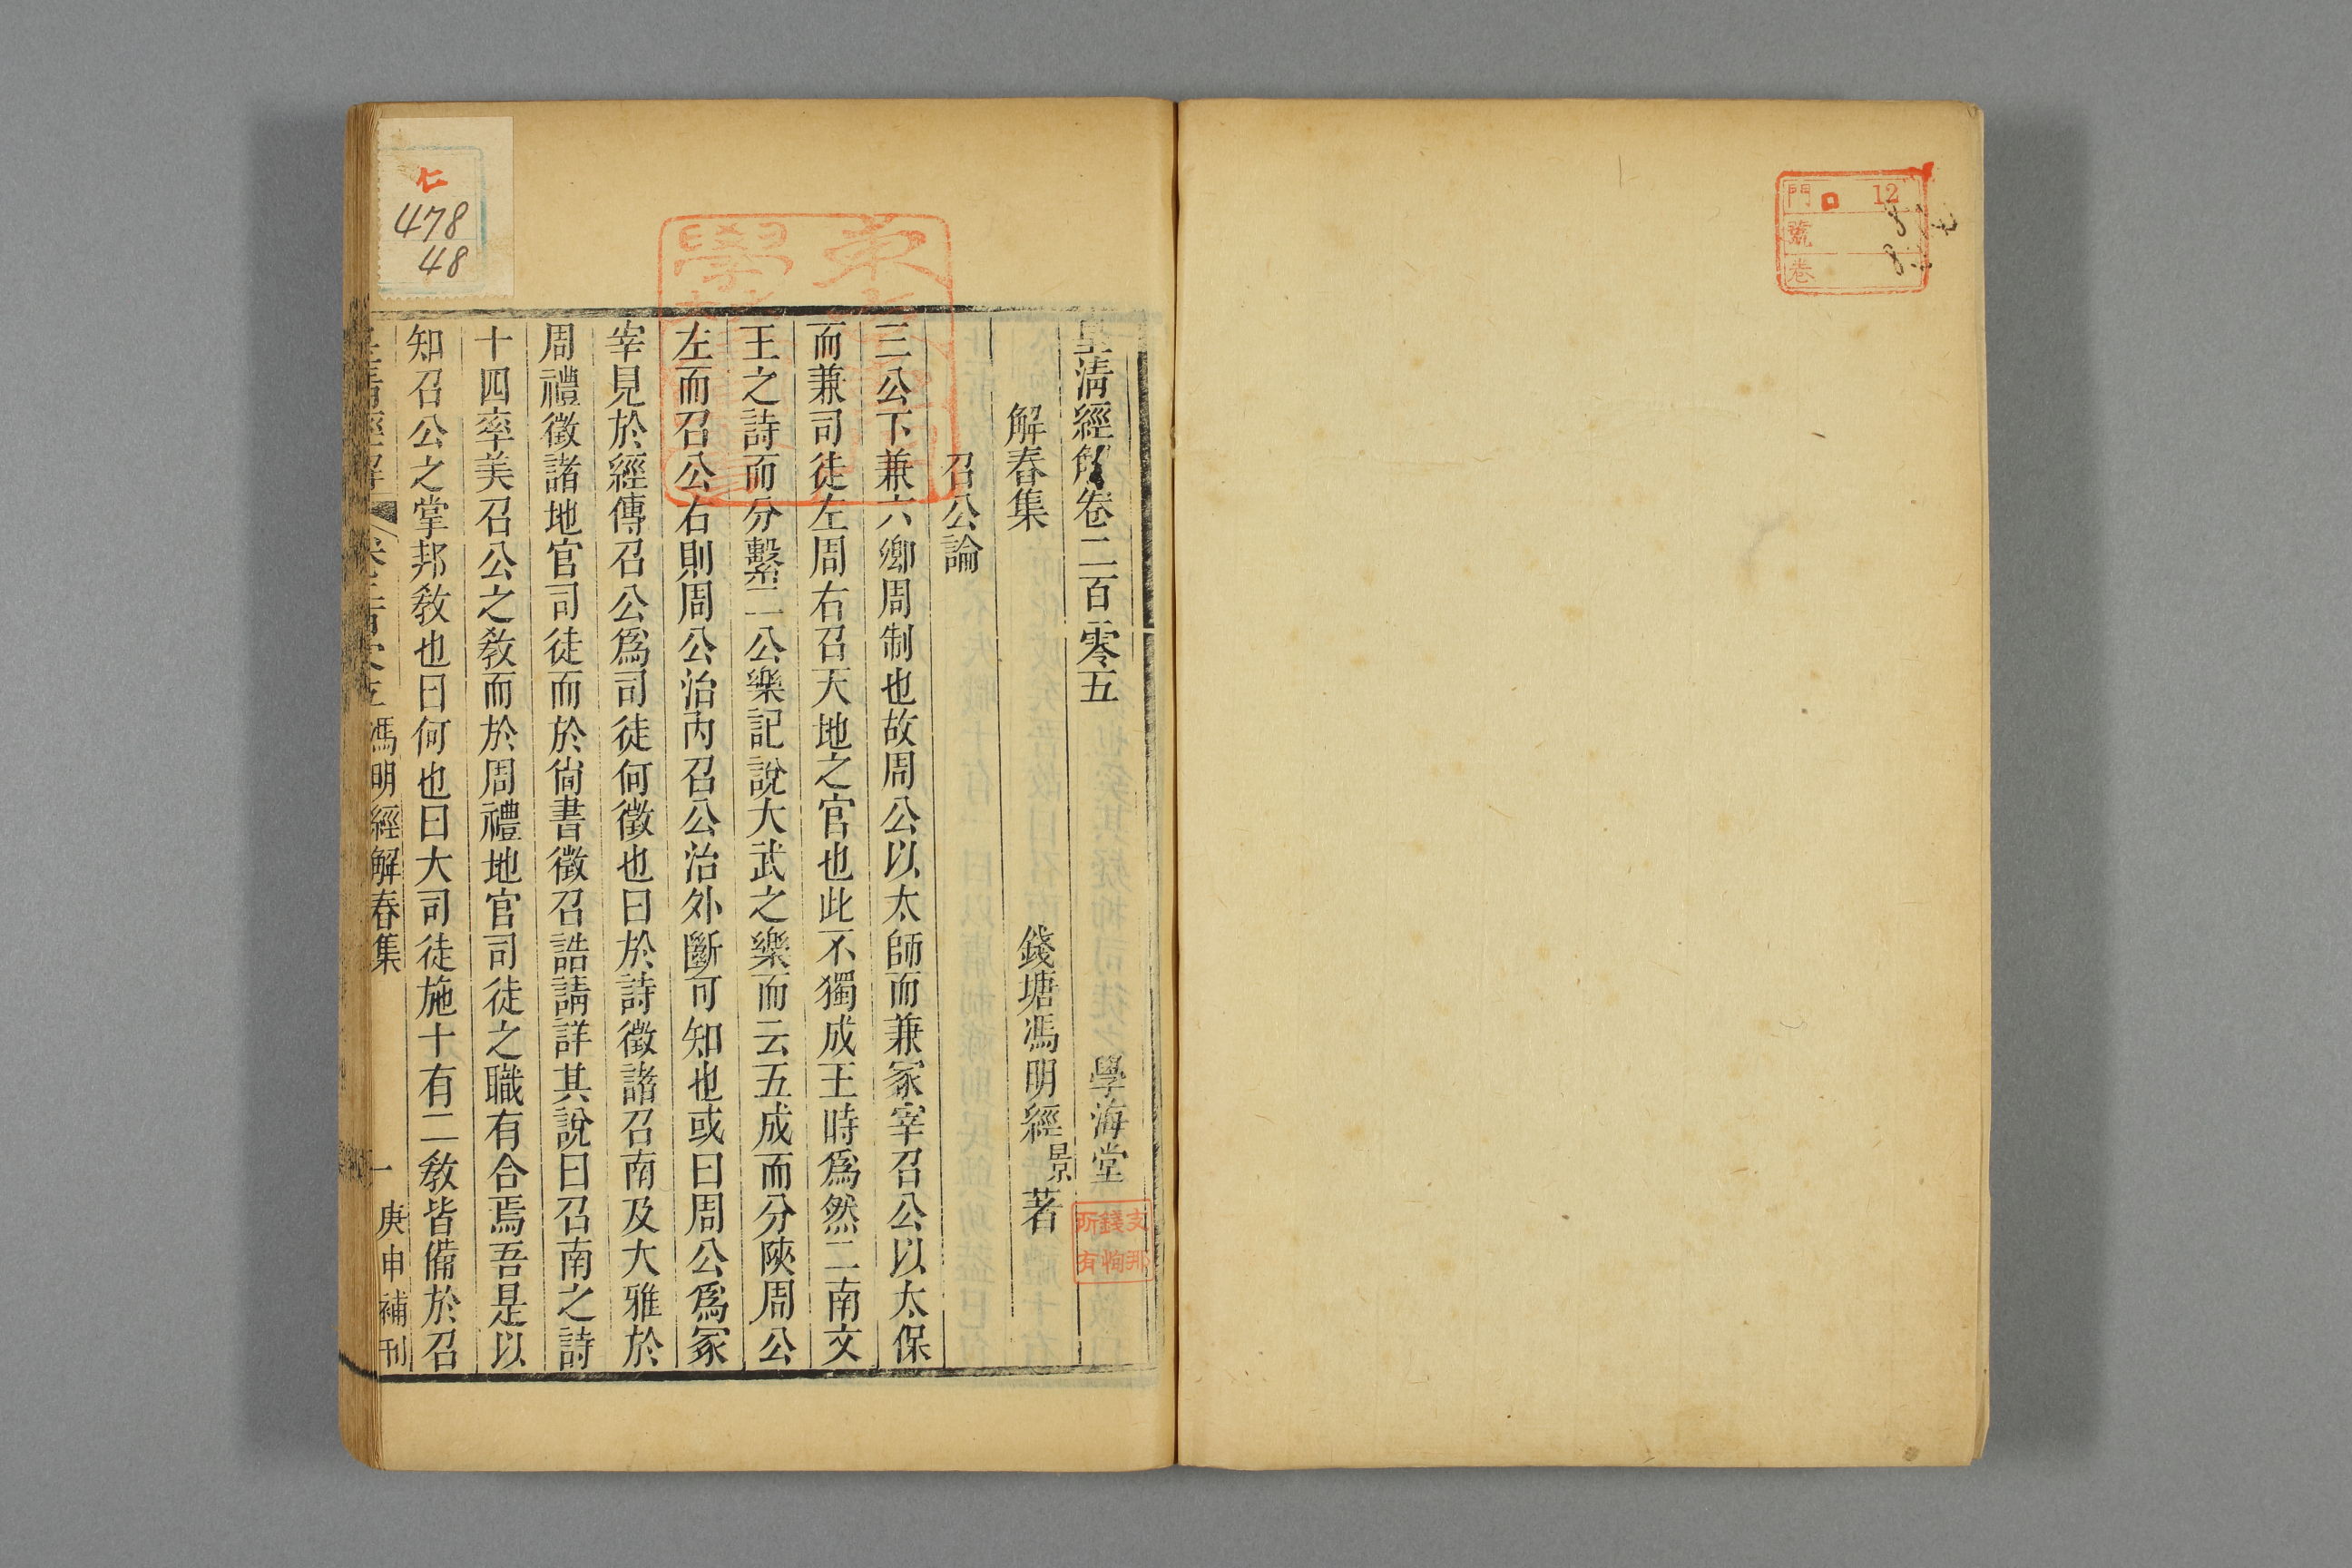 門 口 12
號 8
卷 8
皇清經解卷二百零五 學海堂
支那
錢恂
所有
解春集 錢塘馮明經景著
召公論
三公下兼六鄉周制也故周公以太師而兼冢宰召公以太保
而兼司徒左周右召天地之官也此不獨成王時爲然二南文
王之詩而分繫二公樂記說大武之樂而云五成而分陝周公
左而召公右則周公治內召公治外斷可知也或曰周公爲冢
宰見於經傳召公爲司徒何徵也曰於詩徵諸召南及大雅於
周禮徵諸地官司徒而於尙書徵召誥請詳其說曰召南之詩
十四率美召公之敎而於周禮地官司徒之職有合焉吾是以
知召公之掌邦敎也曰何也曰大司徒施十有二敎皆備於召
皇清經解 卷二百零五 馮明經解春集 一 庚申補刊
仁
478
48